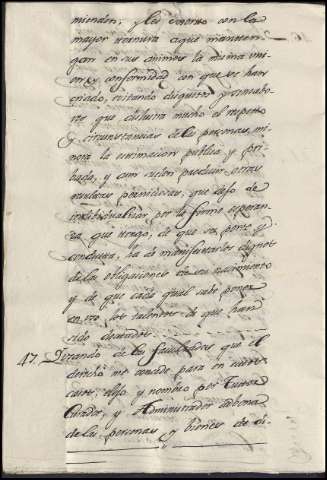 miendan; y les exorto con la
mayor ternura a que manten-
gan en sus animos la misma uni-
on, y conformidad con que se han
criado, evitando disgustos
que deslustra mucho el respeto
y circunstancias de las personas, mi-
nora la estimacion publica y pri-
bada, y aun suelen producir otras
resultas perniciosas, que dejo de
individualizar por la firme esperan-
za que tengo, de que su porte y
conducta, ha de manifestarlos dignos
de las obligaciones de su nacimiento
y de que cada qual sabe poner
en uso los talentos de que han
sido dotados.
47. Usando de las facultades que el
derecho me concede para en
caso, elijo y nombro por Tutora
Curadora, y Administradora
de las personas y bienes de